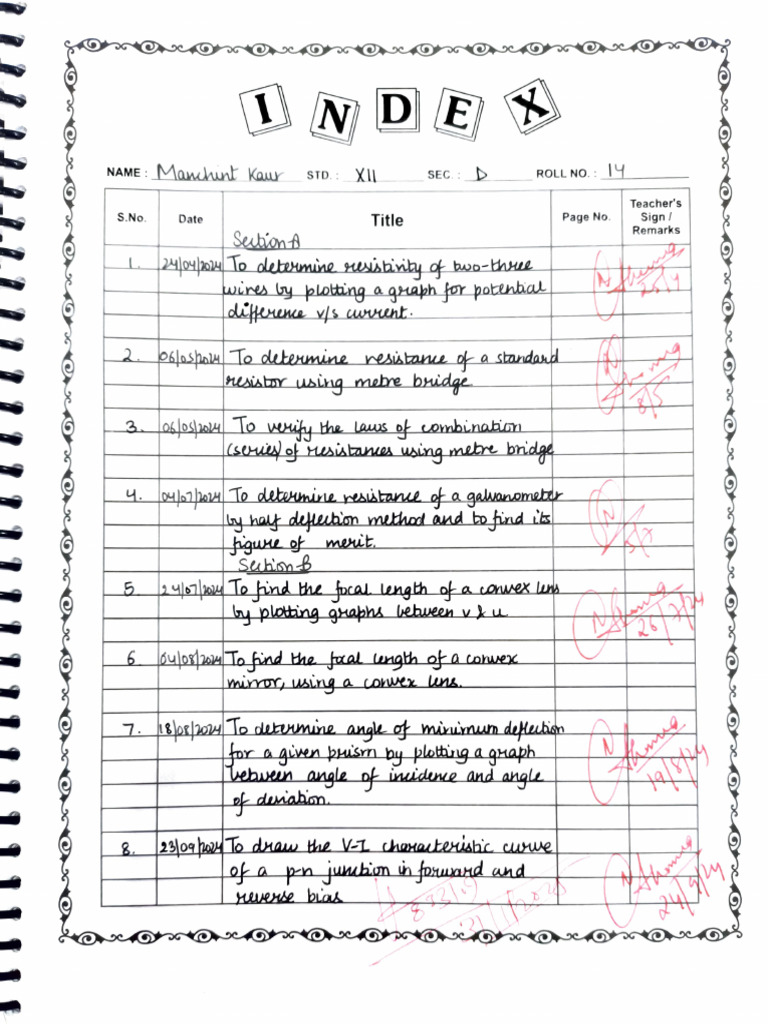 INDEX
NAME : Manchint Kaur STD. : XII SEC. : D ROLL NO. : 14
S.No. Date Title Page No. Teacher's Sign / Remarks
Section A
1. 24/04/2024 To determine resistivity of two-three
wires by plotting a graph for potential
difference v/s current.
25/4
2. 06/05/2024 To determine resistance of a standard
resistor using metre bridge
8/5
3. 06/05/2024 To verify the laws of combination
(series) of resistances using metre bridge
4. 04/07/2024 To determine resistance of a galvanometer
by half deflection method and to find its
figure of merit.
5/7
Section B
5. 24/07/2024 To find the focal length of a convex lens
by plotting graphs between v & u
26/7/24
6. 04/08/2024 To find the focal length of a convex
mirror, using a convex lens.
7. 18/08/2024 To determine angle of minimum deflection
for a given prism by plotting a graph
between angle of incidence and angle
of deviation.
19/8/24
8. 23/09/2024 To draw the V-I characteristic curve
of a p-n junction in forward and
reverse bias
24/9/24